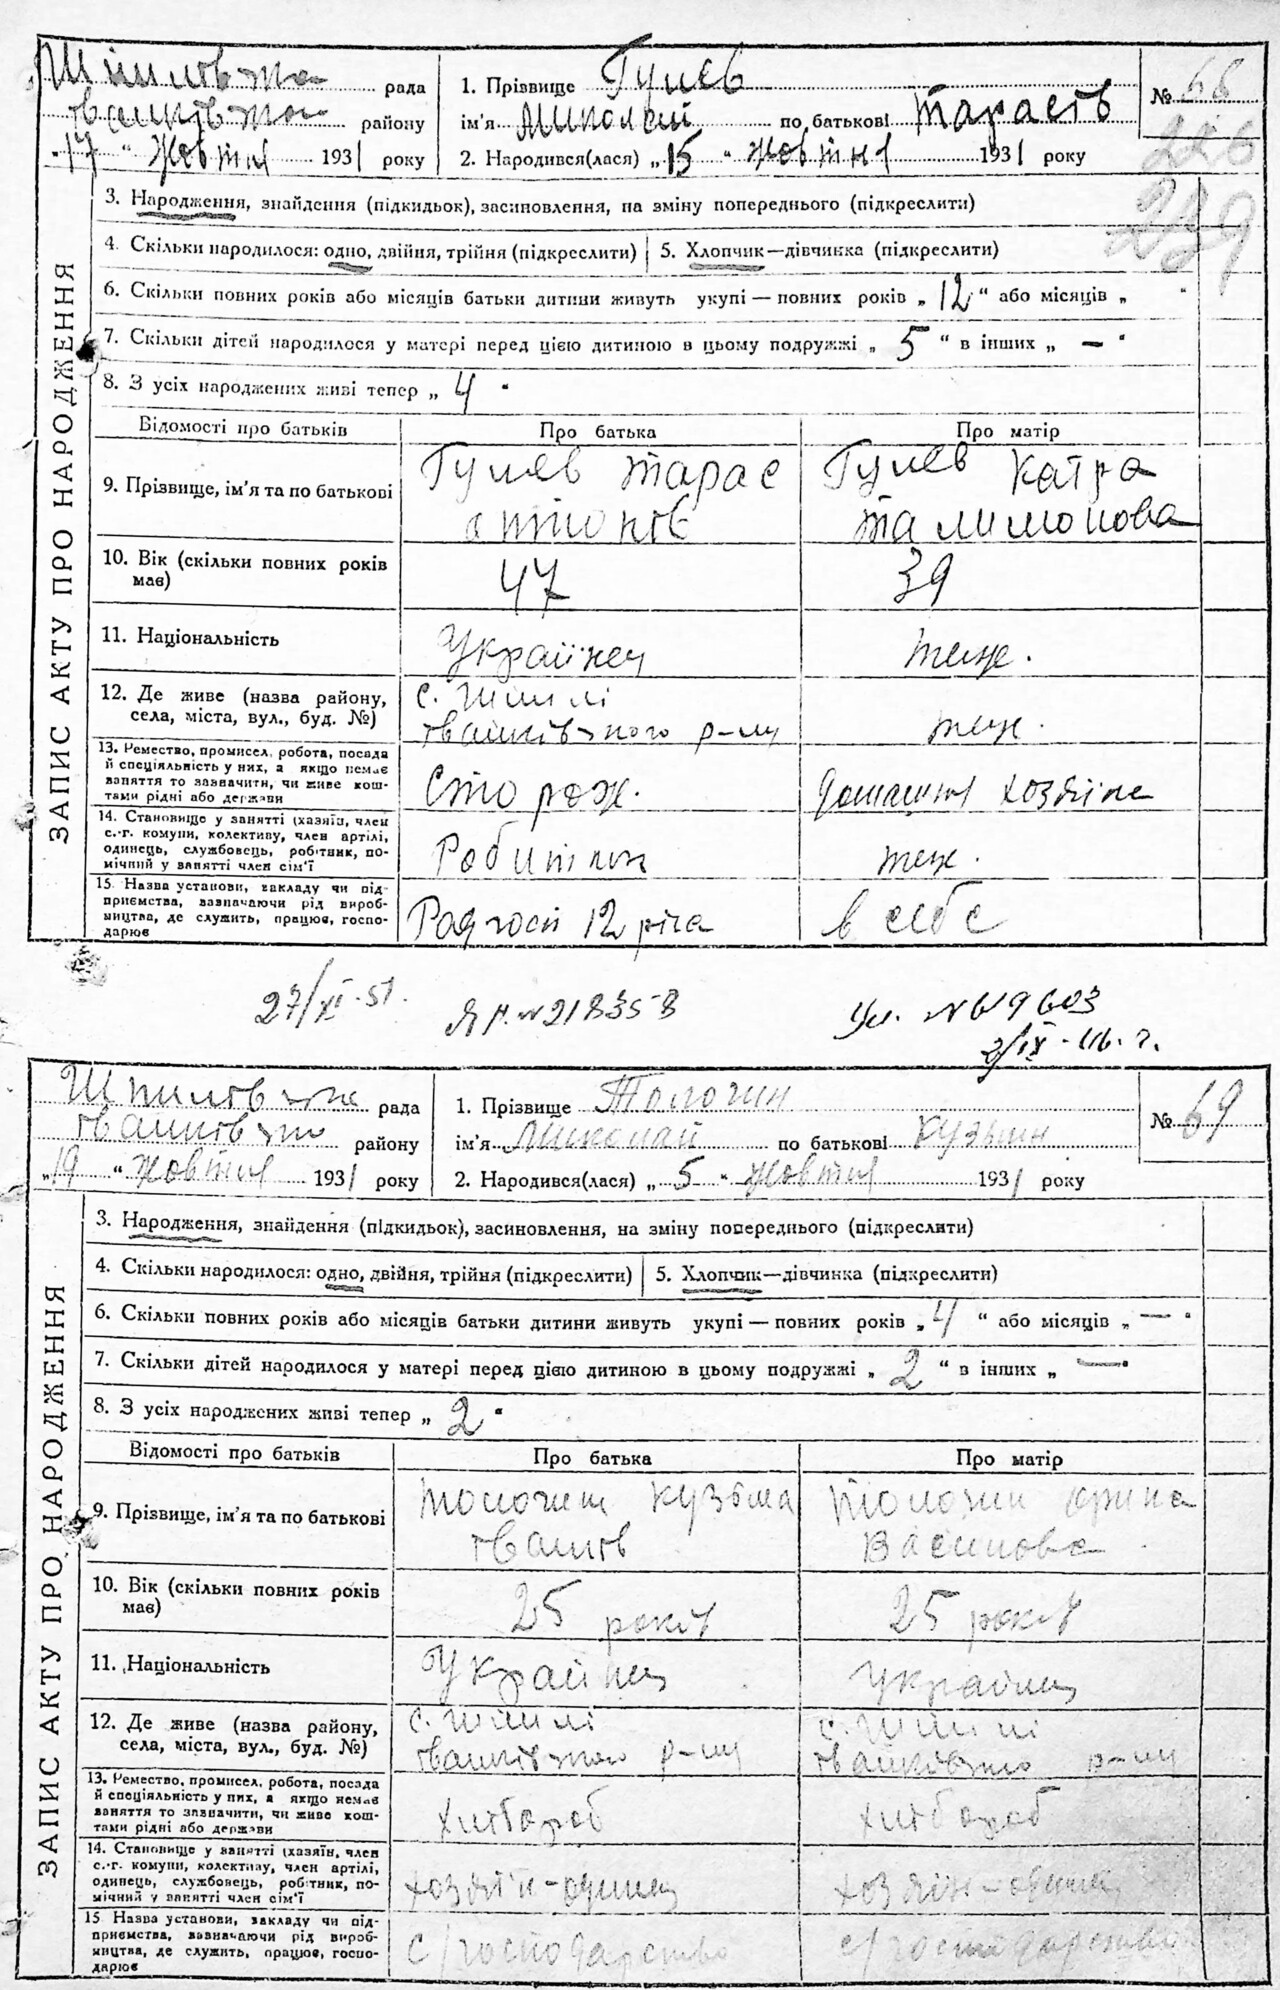 Шпилівська рада
Іванківського району
„17“ жовтня 1931 року
1. Прізвище Гулєв
ім'я Миколай по батькові Тарасів
2. Народився(лася) „15“ жовтня 1931 року
№ 68
226
239
ЗАПИС АКТУ ПРО НАРОДЖЕННЯ
3. Народження, знайдення (підкидьок), засиновлення, на зміну попереднього (підкреслити)
4. Скільки народилося: одно, двійня, трійня (підкреслити) 5. Хлопчик—дівчинка (підкреслити)
6. Скільки повних років або місяців батьки дитини живуть укупі — повних років „12“ або місяців „ “
7. Скільки дітей народилося у матері перед цією дитиною в цьому подружжі „5“ в інших „—“
8. З усіх народжених живі тепер „4“
Відомості про батьків Про батька Про матір
9. Прізвище, ім'я та по батькові
Гулєв Тарас
Гулєв Катра
Талимонова
10. Вік (скільки повних років має) 47 39
11. Національність Українец теж.
12. Де живе (назва району, села, міста, вул., буд. №)
с. Шпилі
Іванківського р-ну
теж.
13. Ремество, промисел, робота, посада
й спеціяльність у них, а якщо немає
заняття то зазначити, чи живе кош-
тами рідні або держави
Сторож.
14. Становище у занятті (хазяїн, член
с.-г. комуни, колективу, член артілі,
одинець, службовець, робітник, по-
мічний у занятті член сім'ї
Робітник
теж.
15. Назва установи, закладу чи під-
приємства, зазначаючи рід вироб-
ництва, де служить, працює, госпо-
дарює
Радгосп 12 річя
в себе
27/XI-51.
№ 218358
№ 619603
2/IX-46. г.
Шпилівська рада
Іванківського району
„19“ жовтня 1931 року
1. Прізвище Толочин
ім'я Миколай по батькові Кузьмин
2. Народився(лася) „5“ жовтня 1931 року
№ 69
ЗАПИС АКТУ ПРО НАРОДЖЕННЯ
3. Народження, знайдення (підкидьок), засиновлення, на зміну попереднього (підкреслити)
4. Скільки народилося: одно, двійня, трійня (підкреслити) 5. Хлопчик—дівчинка (підкреслити)
6. Скільки повних років або місяців батьки дитини живуть укупі — повних років „4“ або місяців „—“
7. Скільки дітей народилося у матері перед цією дитиною в цьому подружжі „2“ в інших „—“
8. З усіх народжених живі тепер „2“
Відомості про батьків Про батька Про матір
9. Прізвище, ім'я та по батькові
Толочин Кузьма
Іванів
Толочин Орина
10. Вік (скільки повних років має) 25 років 25 років
11. Національність Українец Українец
12. Де живе (назва району, села, міста, вул., буд. №)
с. Шпилі
Іванківського р-ну
с. Шпилі
Іванківського р-ну
13. Ремество, промисел, робота, посада
й спеціяльність у них, а якщо немає
заняття то зазначити, чи живе кош-
тами рідні або держави
хлібороб
хлібороб
14. Становище у занятті (хазяїн, член
с.-г. комуни, колективу, член артілі,
одинець, службовець, робітник, по-
мічний у занятті член сім'ї
хозяїн-одинец
хозяїн-одинец
15 Назва установи, закладу чи під-
приємства, зазначаючи рід вироб-
ництва, де служить, працює, госпо-
дарює
с/господарство
с/господарство